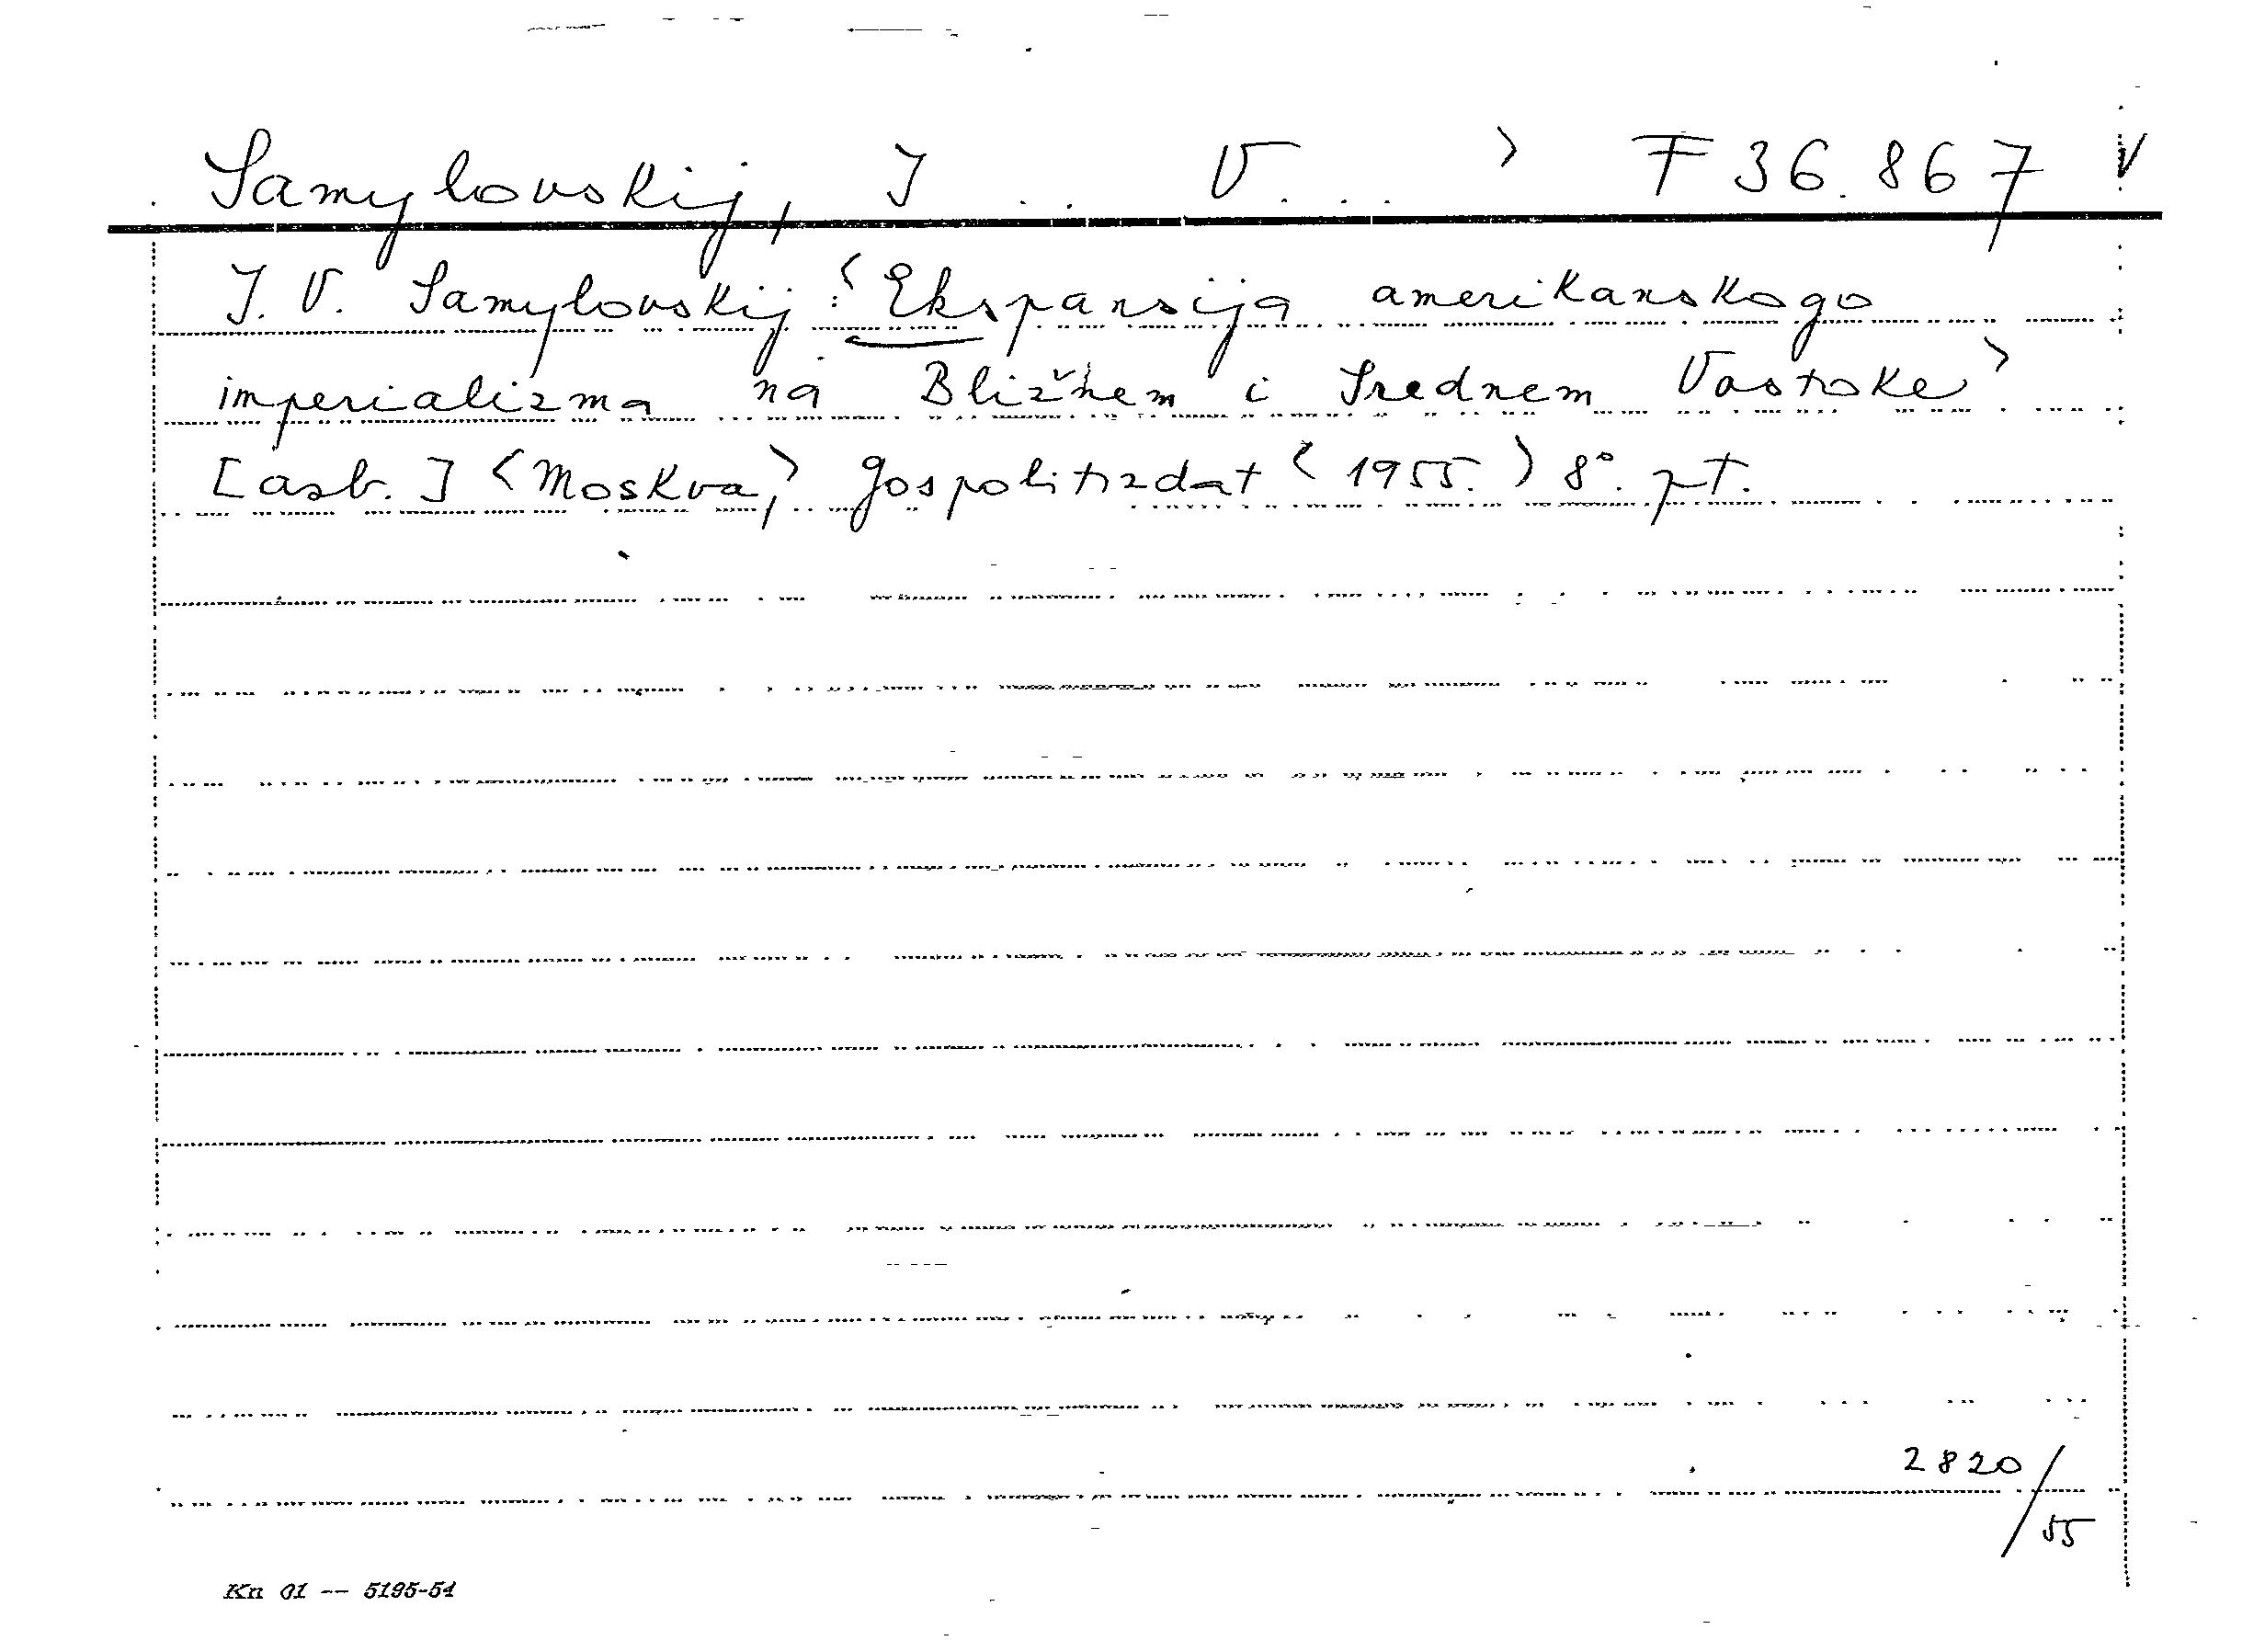 Samylovskij, I . . V. . . > F 36.867 V
I. V. Samylovskij: <Ekspansija amerikanskogo
imperializma na Bližnem i Srednem Vostoke>
[azb.] <Moskva,> Gospolitizdat <1955.> 8°. pT.
2820/55
Kn 01 -- 5195-54